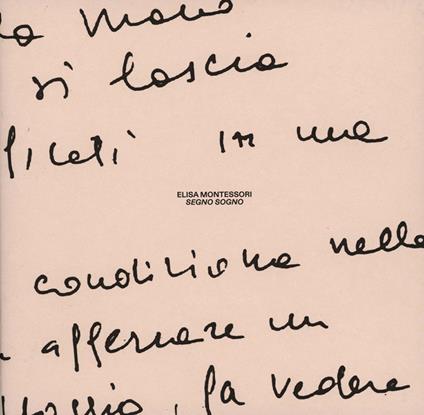 la mano
si lascia
ficati in una
ELISA MONTESSORI
SEGNO SOGNO
condiziona nella
afferrare un
, fa vedere